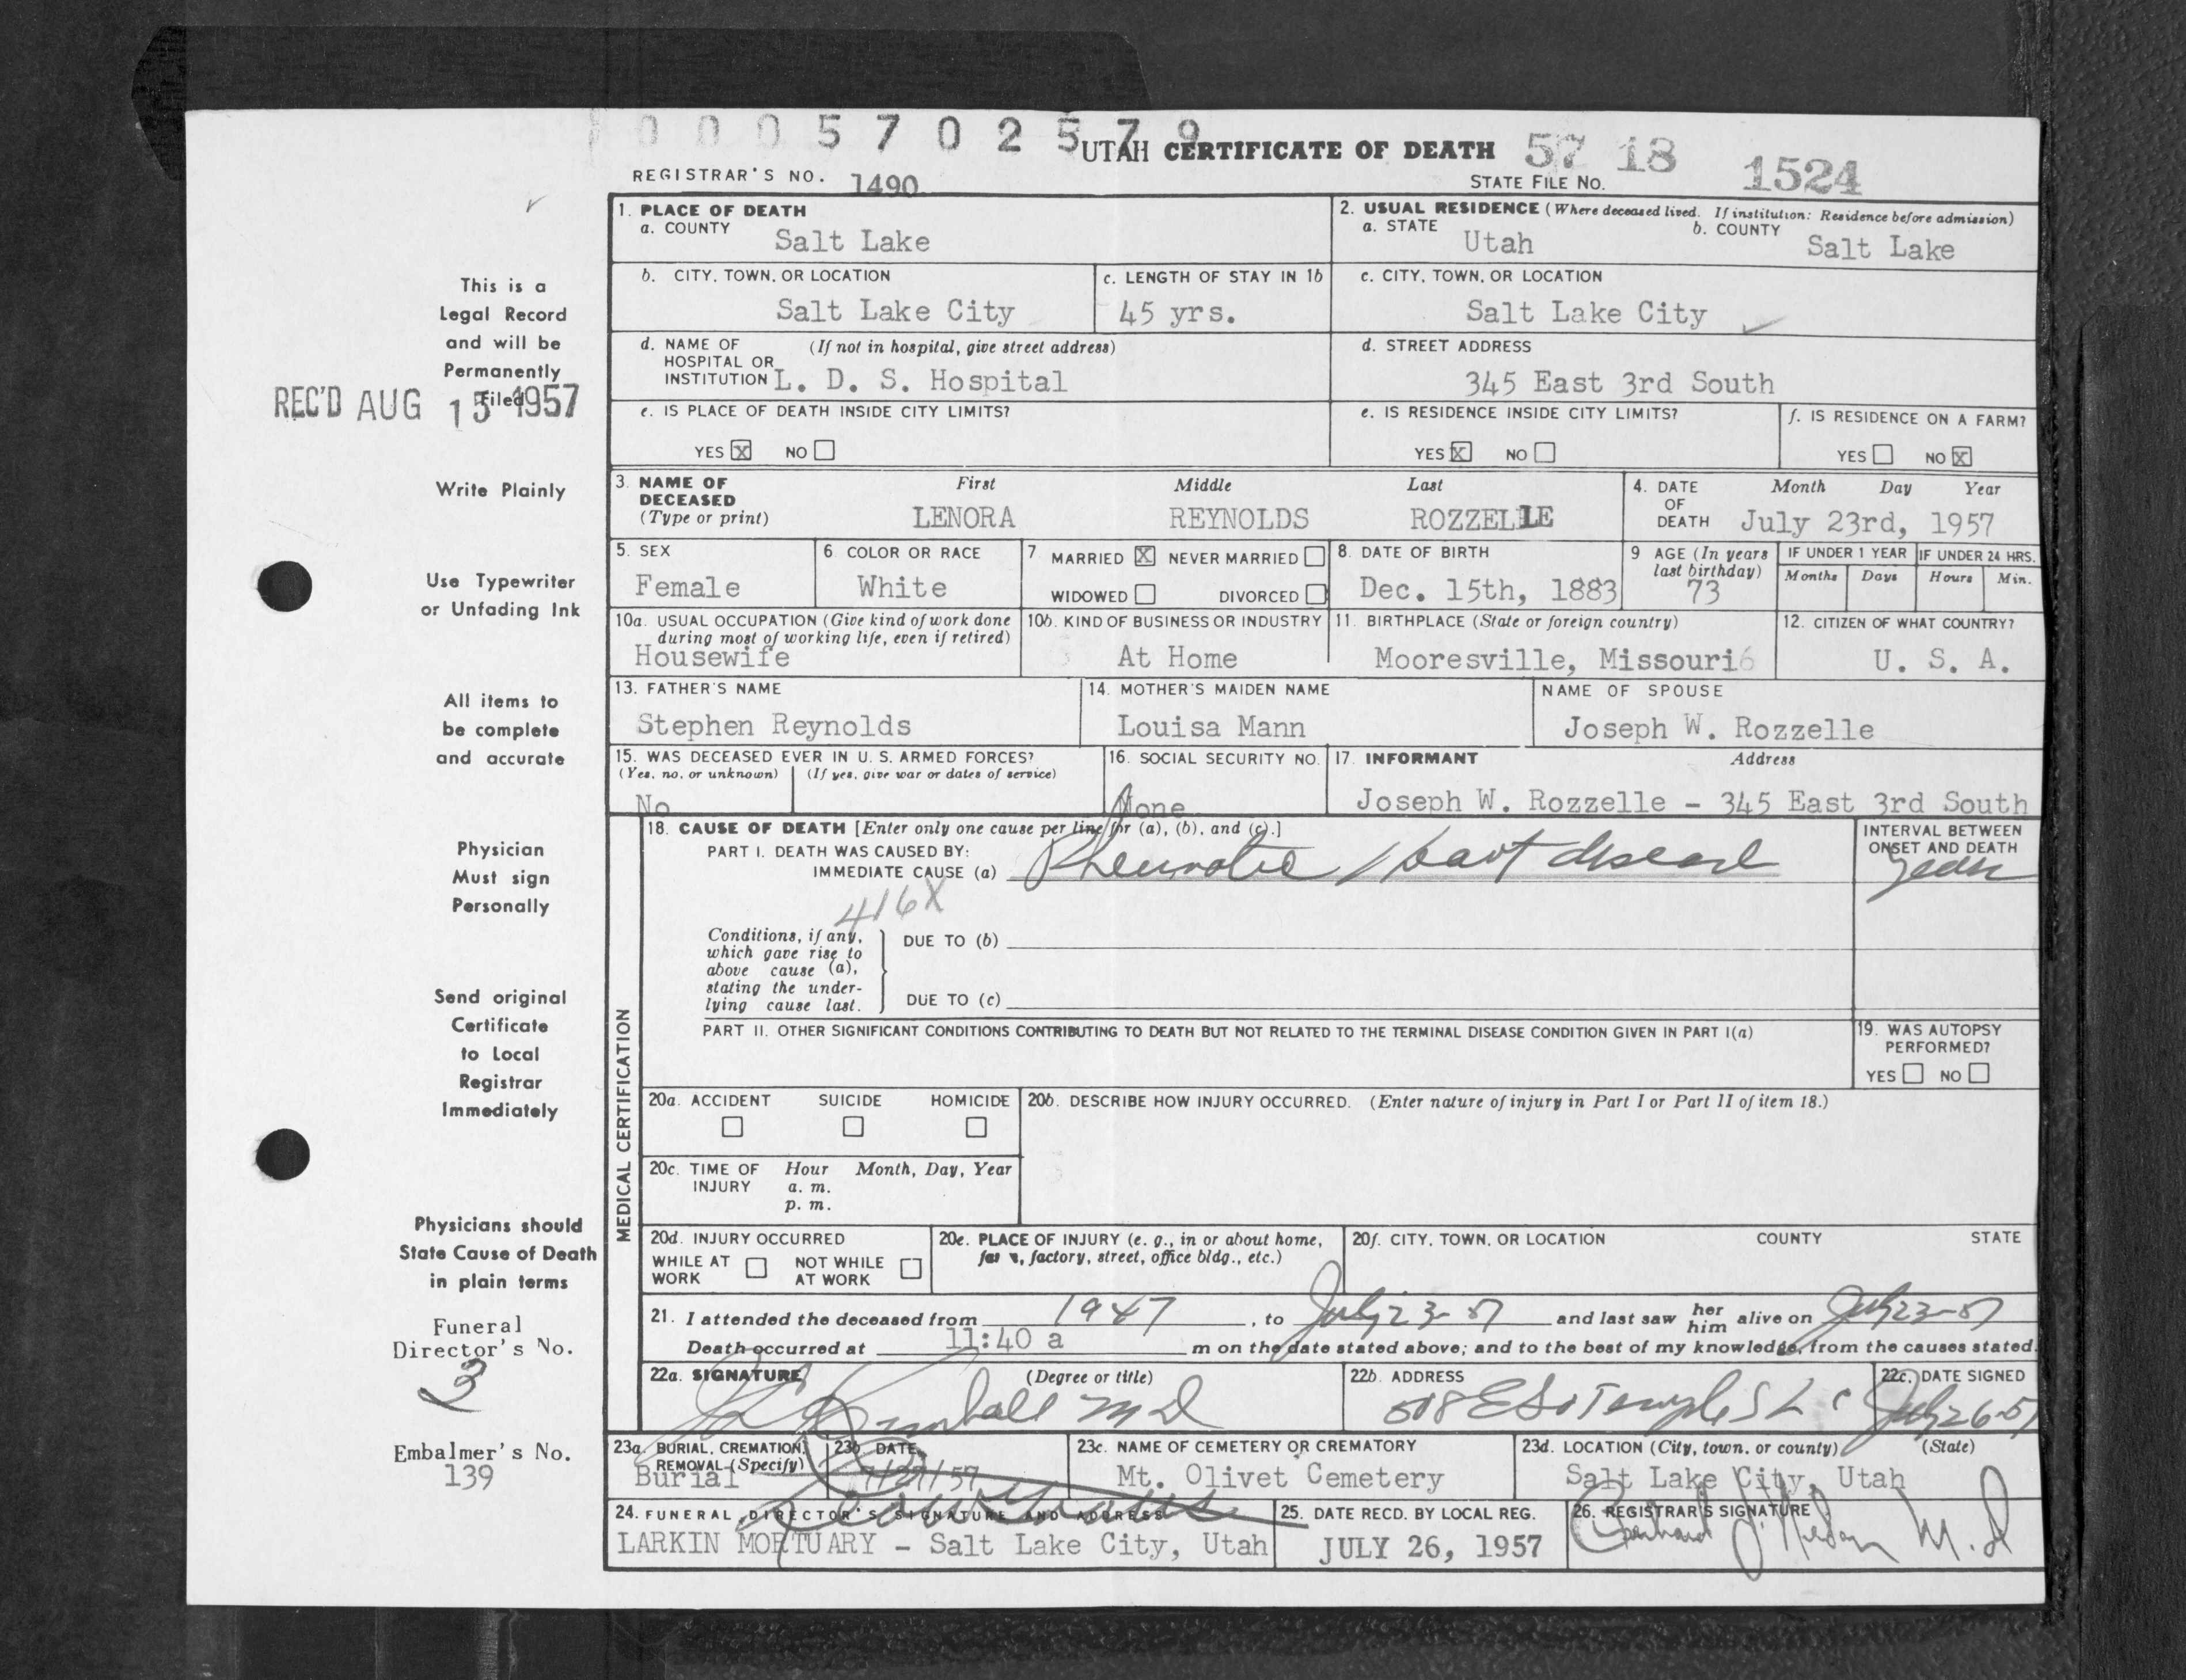 0005702579
UTAH CERTIFICATE OF DEATH 57 18 1524
REGISTRAR'S NO. 1490 STATE FILE NO.
1. PLACE OF DEATH
a. COUNTY Salt Lake
2. USUAL RESIDENCE (Where deceased lived. If institution: Residence before admission)
a. STATE Utah b. COUNTY Salt Lake
b. CITY, TOWN, OR LOCATION Salt Lake City
c. LENGTH OF STAY IN 1b 45 yrs.
c. CITY, TOWN, OR LOCATION Salt Lake City
d. NAME OF HOSPITAL OR INSTITUTION (If not in hospital, give street address)
L. D. S. Hospital
d. STREET ADDRESS
345 East 3rd South
e. IS PLACE OF DEATH INSIDE CITY LIMITS?
YES X NO
e. IS RESIDENCE INSIDE CITY LIMITS?
YES X NO
f. IS RESIDENCE ON A FARM?
YES NO X
3. NAME OF DECEASED (Type or print)
First Middle Last
LENORA REYNOLDS ROZZELLE
4. DATE OF DEATH Month Day Year
July 23rd, 1957
5. SEX
Female
6. COLOR OR RACE
White
7. MARRIED X NEVER MARRIED
WIDOWED DIVORCED
8. DATE OF BIRTH
Dec. 15th, 1883
9 AGE (In years last birthday)
73
IF UNDER 1 YEAR IF UNDER 24 HRS.
Months Days Hours Min.
10a. USUAL OCCUPATION (Give kind of work done during most of working life, even if retired)
Housewife
10b. KIND OF BUSINESS OR INDUSTRY
At Home
11. BIRTHPLACE (State or foreign country)
Mooresville, Missouri 6
12. CITIZEN OF WHAT COUNTRY?
U. S. A.
13. FATHER'S NAME
Stephen Reynolds
14. MOTHER'S MAIDEN NAME
Louisa Mann
NAME OF SPOUSE
Joseph W. Rozzelle
15. WAS DECEASED EVER IN U. S. ARMED FORCES?
(Yes, no, or unknown) (If yes, give war or dates of service)
No
16. SOCIAL SECURITY NO.
None
17. INFORMANT Address
Joseph W. Rozzelle - 345 East 3rd South
MEDICAL CERTIFICATION
18. CAUSE OF DEATH [Enter only one cause per line for (a), (b), and (c).]
PART I. DEATH WAS CAUSED BY:
IMMEDIATE CAUSE (a) Rheumatic Heart disease
INTERVAL BETWEEN ONSET AND DEATH
years
416X
Conditions, if any,
which gave rise to
above cause (a),
stating the under-
lying cause last.
DUE TO (b)
DUE TO (c)
PART II. OTHER SIGNIFICANT CONDITIONS CONTRIBUTING TO DEATH BUT NOT RELATED TO THE TERMINAL DISEASE CONDITION GIVEN IN PART I(a)
19. WAS AUTOPSY PERFORMED?
YES NO
20a. ACCIDENT SUICIDE HOMICIDE
20b. DESCRIBE HOW INJURY OCCURRED. (Enter nature of injury in Part I or Part II of item 18.)
20c. TIME OF INJURY Hour Month, Day, Year
a. m.
p. m.
20d. INJURY OCCURRED
WHILE AT WORK NOT WHILE AT WORK
20e. PLACE OF INJURY (e. g., in or about home, farm, factory, street, office bldg., etc.)
20f. CITY, TOWN, OR LOCATION COUNTY STATE
21. I attended the deceased from 1947, to July 23-57 and last saw her him alive on July 23-57
Death occurred at 11:40 a m on the date stated above; and to the best of my knowledge, from the causes stated.
22a. SIGNATURE (Degree or title)
Kimball MD
22b. ADDRESS
508 E So Temple S L C
22c. DATE SIGNED
July 26-57
23a. BURIAL, CREMATION, REMOVAL (Specify)
Burial
23b. DATE
7/27/57
23c. NAME OF CEMETERY OR CREMATORY
Mt. Olivet Cemetery
23d. LOCATION (City, town, or county) (State)
Salt Lake City, Utah
24. FUNERAL DIRECTOR'S SIGNATURE AND ADDRESS
LARKIN MORTUARY - Salt Lake City, Utah
25. DATE RECD. BY LOCAL REG.
JULY 26, 1957
26. REGISTRAR'S SIGNATURE
M.D
This is a
Legal Record
and will be
Permanently
Filed
REC'D AUG 15 1957
Write Plainly
Use Typewriter
or Unfading Ink
All items to
be complete
and accurate
Physician
Must sign
Personally
Send original
Certificate
to Local
Registrar
Immediately
Physicians should
State Cause of Death
in plain terms
Funeral
Director's No.
3
Embalmer's No.
139